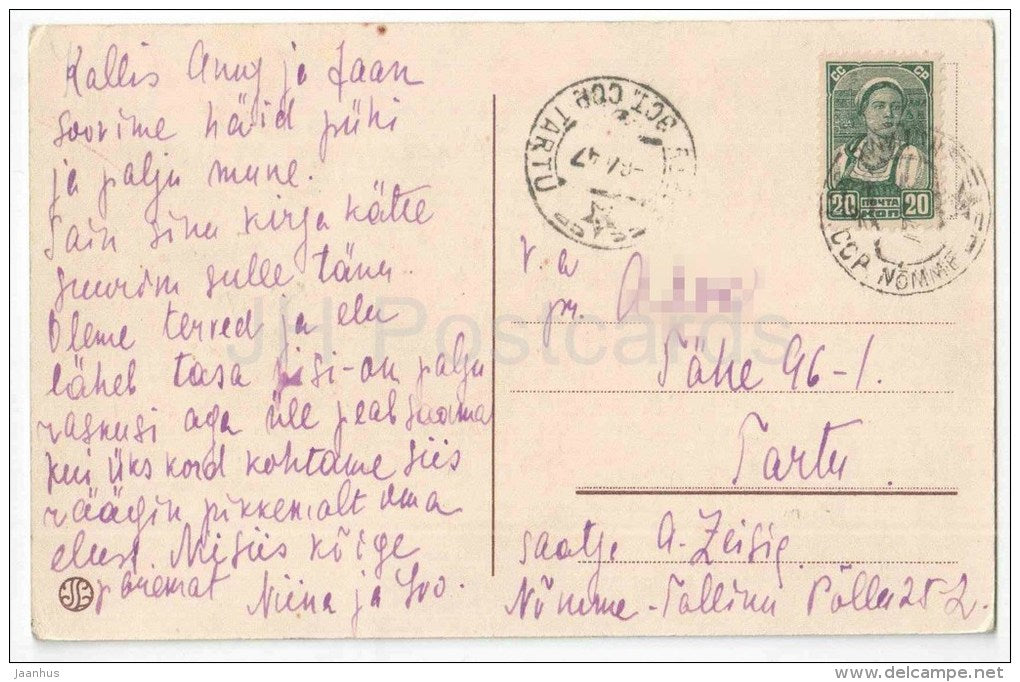 Kallis Anny ja Jaan
soovime häid pühi
ja palju mune.
Sain sinu kirja kätte
suurim sulle tänu
Oleme terved ja elu
läheb tasa on palju
raskusi aga üle peab saama
kui üks kord kohtame siis
räägin pikkemalt oma
elust. Niisiis kõige
paremat Niina ja
v. a
pr. A
Tähe 96-1.
Tartu.
saatja A. Zeisig
Nõmme-Tallinn Põllu 25-2.
СС СР
20 ПОЧТА 20
КОП
ЭСТ. ССР TARTU
47
ССР NÕMME
JH Postcards
jaanhus
www.delcampe.net